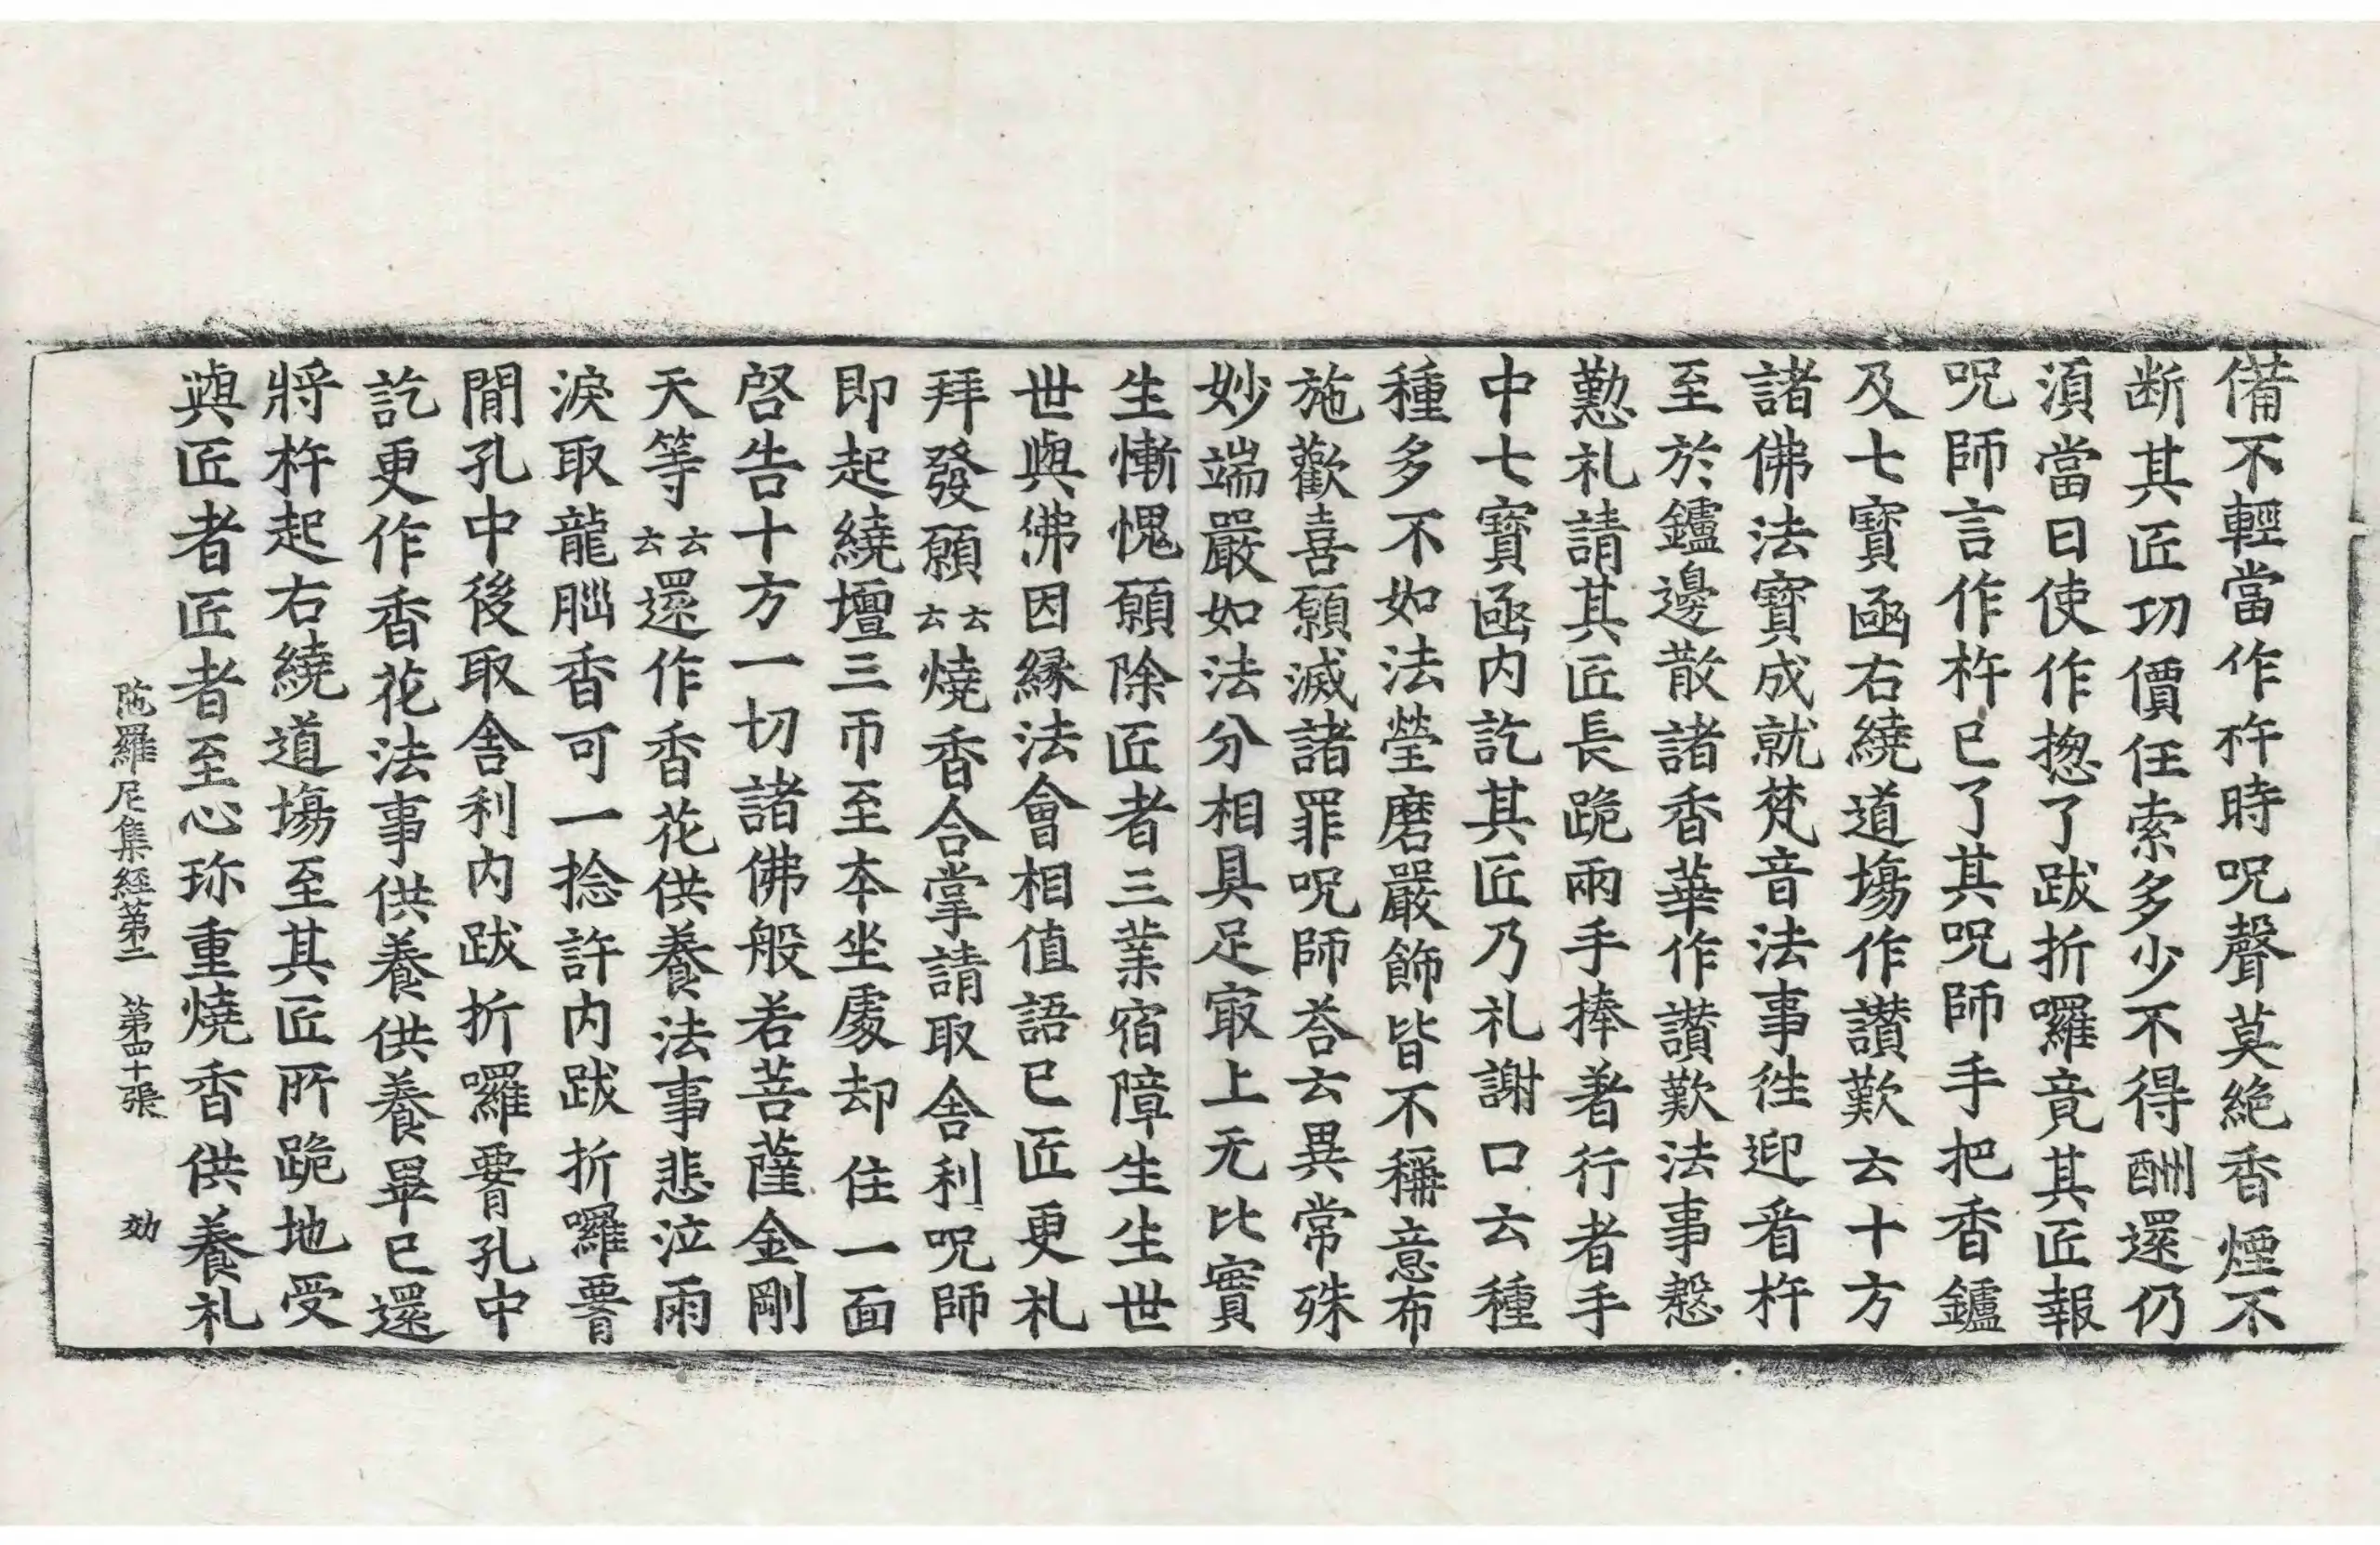 備不輕當作杵時呪聲莫絶香煙不
断其匠功價任索多少不得酬還仍
湏當日使作揔了跋折囉竟其匠報
呪師言作杵已了其呪師手把香鑪
及七寶函右繞道塲作讃歎云十方
諸佛法寶成就梵音法事徃迎看杵
至於鑪邊散諸香華作讃歎法事慇
懃礼請其匠長跪兩手捧著行者手
中七寶函内訖其匠乃礼謝口云種
種多不如法瑩磨嚴飾皆不稱意布
施歡喜願滅諸罪呪師荅云異常殊
妙端嚴如法分相具足㝡上无比實
生慚愧願除匠者三業宿障生生世
世與佛因縁法會相值語已匠更礼
拜發願云云燒香合掌請取舎利呪師
即起繞壇三帀至本坐處却住一面
啓告十方一切諸佛般若菩薩金剛
天等云云還作香花供養法事悲泣雨
淚取龍腦香可一捻許内跋折囉𦝫
閒孔中後取舎利内跋折囉𦝫孔中
訖更作香花法事供養供養畢已還
將杵起右繞道塲至其匠所跪地受
與匠者匠者至心珎重燒香供養礼
陁羅尼集經苐二 苐四十張 効